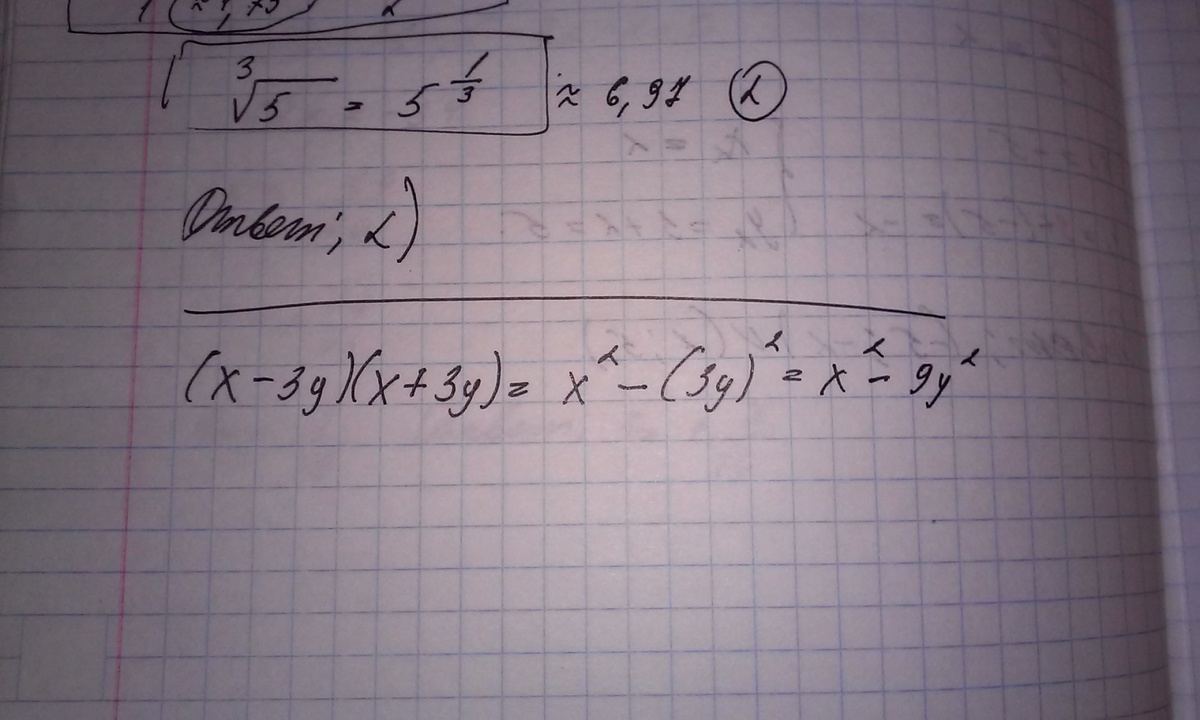 ∛5 = 5^(1/3) ≈ 6,97 (2)
Ответ; 2)
(x - 3y)(x + 3y) = x² - (3y)² = x² - 9y²